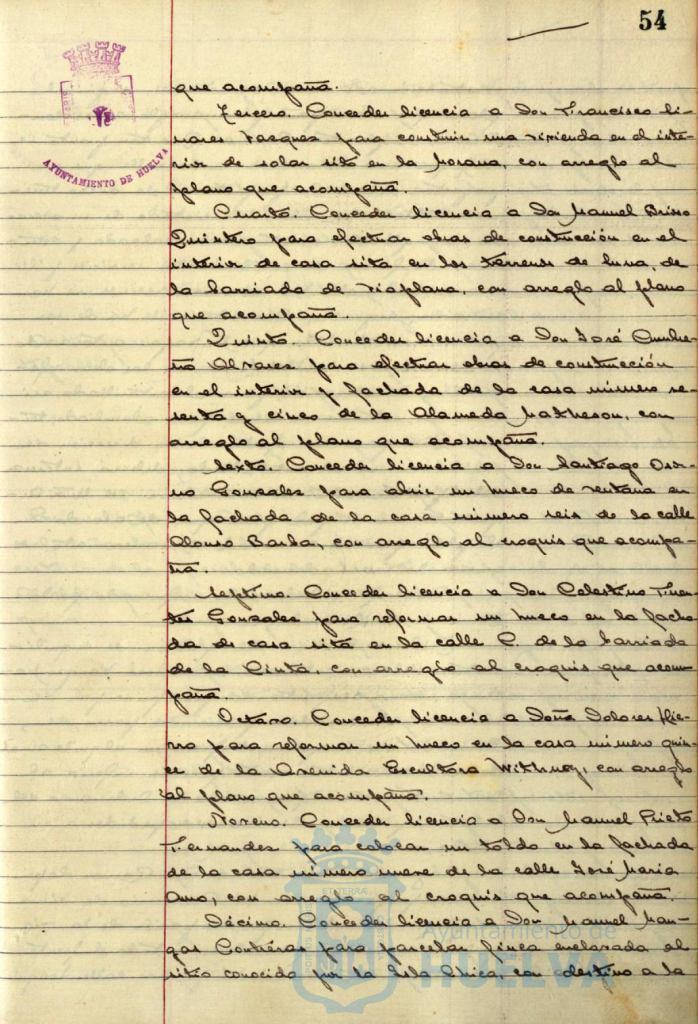 54
AYUNTAMIENTO DE HUELVA
que acompaña.
Tercero. Conceder licencia a Don Francisco Li-
nares Vasques para construir una vivienda en el inte-
rior de solar sito en la Morana, con arreglo al
plano que acompaña.
Cuarto. Conceder licencia a Don Manuel Brioso
Quintero para efectuar obras de construcción en el
interior de casa sita en los terrenos de Luna, de
la barriada de Viaplana, con arreglo al plano
que acompaña.
Quinto. Conceder licencia a Don José Cumbre-
ño Alvares para efectuar obras de construcción
en el interior y fachada de la casa número se-
senta y cinco de la Alameda Matheson, con
arreglo al plano que acompaña.
Sexto. Conceder licencia a Don Santiago Osor-
no Gonzales para abrir un hueco de ventana en
la fachada de la casa número seis de la calle
Alonso Barba, con arreglo al croquis que acompa-
ña.
Septimo. Conceder licencia a Don Celestino Fuen-
tes Gonzales para reformar un hueco en la facha
da de casa sita en la calle C. de la barriada
de la Cinta, con arreglo al croquis que acom-
paña.
Octavo. Conceder licencia a Doña Dolores Hie-
rro para reformar un hueco en la casa número quin-
ce de la Avenida Escultora Withney, con arreglo
al plano que acompaña.
Noveno. Conceder licencia a Don Manuel Prieto
Fernandes para colocar un toldo en la fachada
de la casa número nueve de la calle José Maria
Amo, con arreglo al croquis que acompaña.
Décimo. Conceder licencia a Don Manuel Man-
gas Contreras para parcelar finca enclavada al
sitio conocido por la Isla Chica, con destino a la
Ayuntamiento de
HUELVA